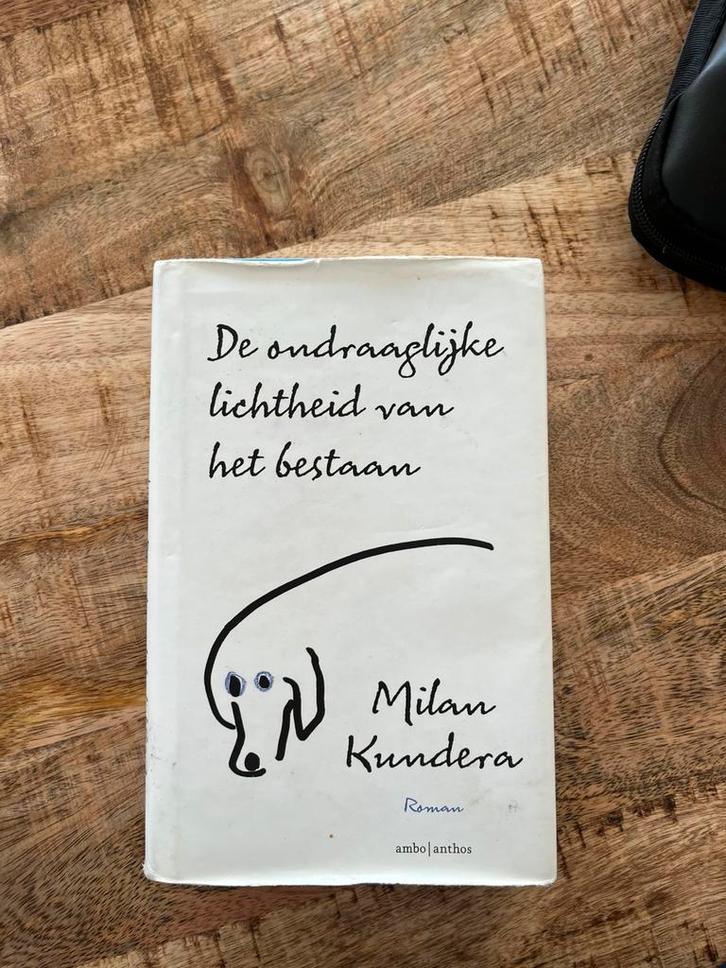 De ondraaglijke
lichtheid van
het bestaan
Milan
Kundera
Roman
ambo|anthos